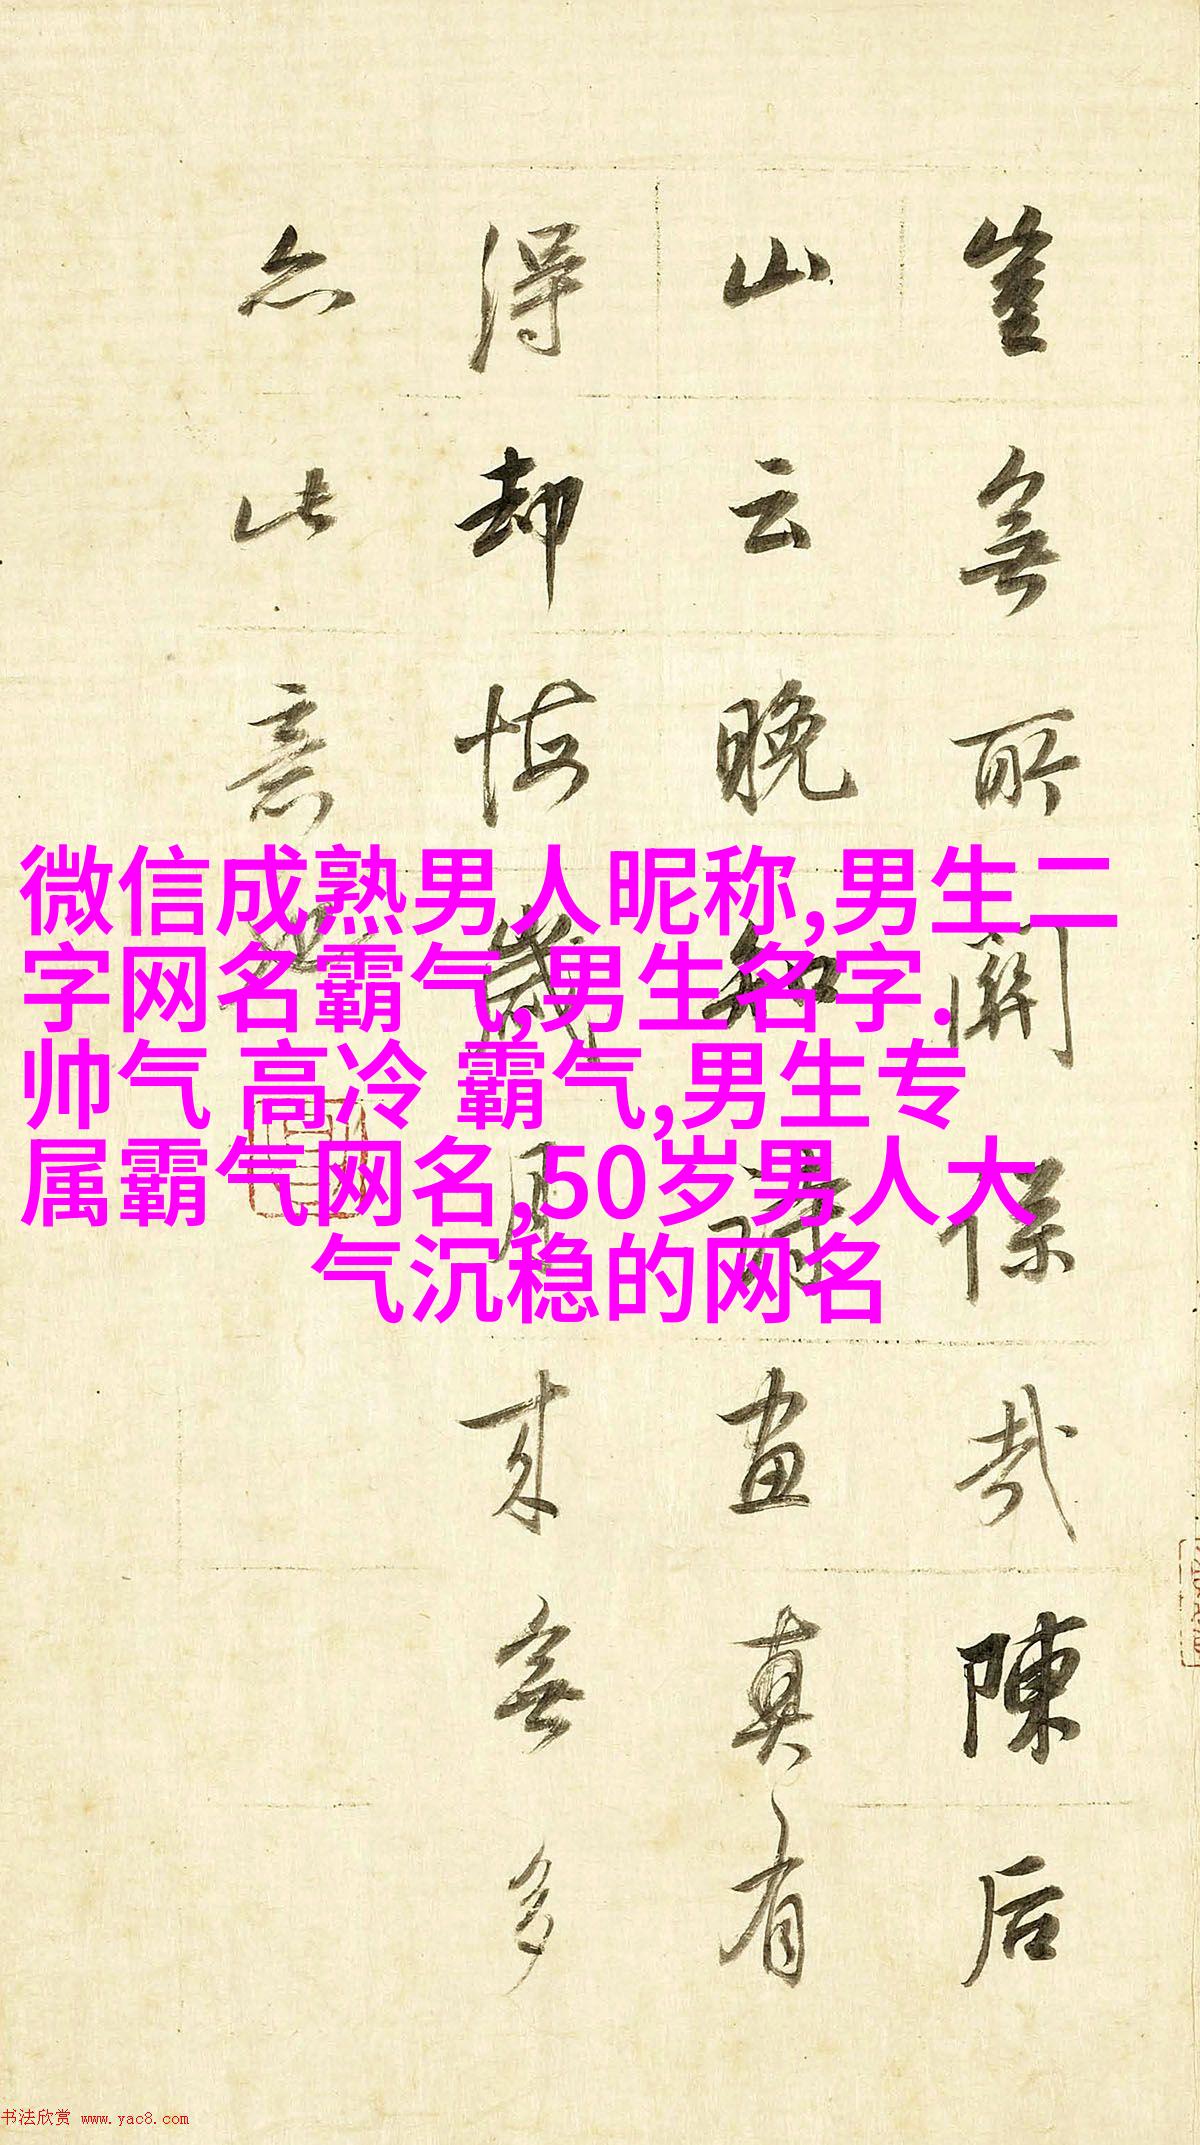 岂无所关保哉陳后
山云晚知诗画真有
得却悔歲月来無多
亦此意也
微信成熟男人昵称,男生二
字网名霸气,男生名字.
帅气 高冷 霸气,男生专
属霸气网名,50岁男人大
气沉稳的网名
书法欣赏 www.yac8.com